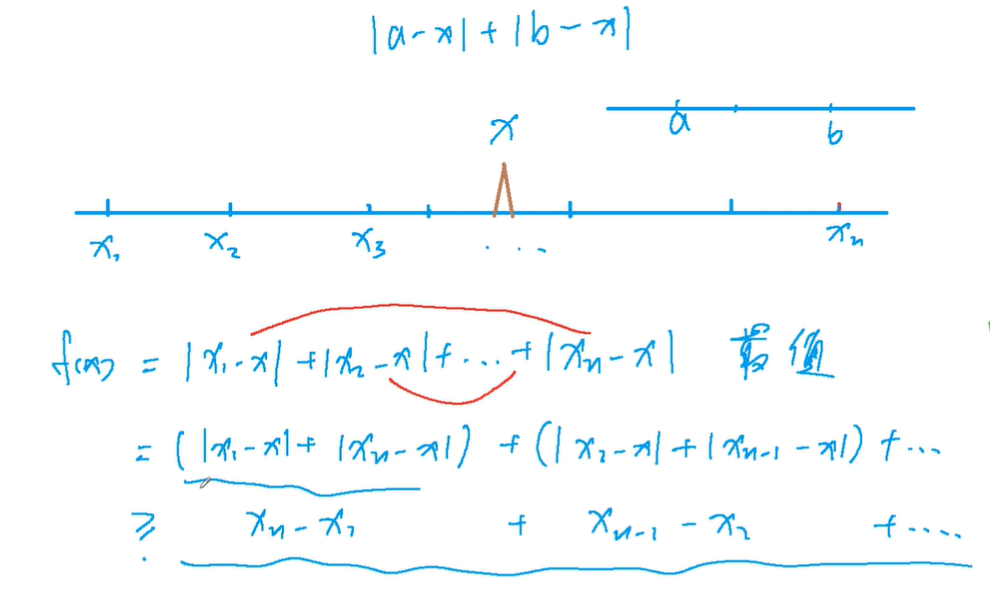 |a-x|+|b-x|
a b
x
x₁ x₂ x₃ ... xₙ
f(x) = |x₁-x|+|x₂-x|+...+|xₙ-x| 最值
= (|x₁-x|+|xₙ-x|)+(|x₂-x|+|xₙ₋₁-x|)+...
≥ xₙ-x₁ + xₙ₋₁-x₂ +....